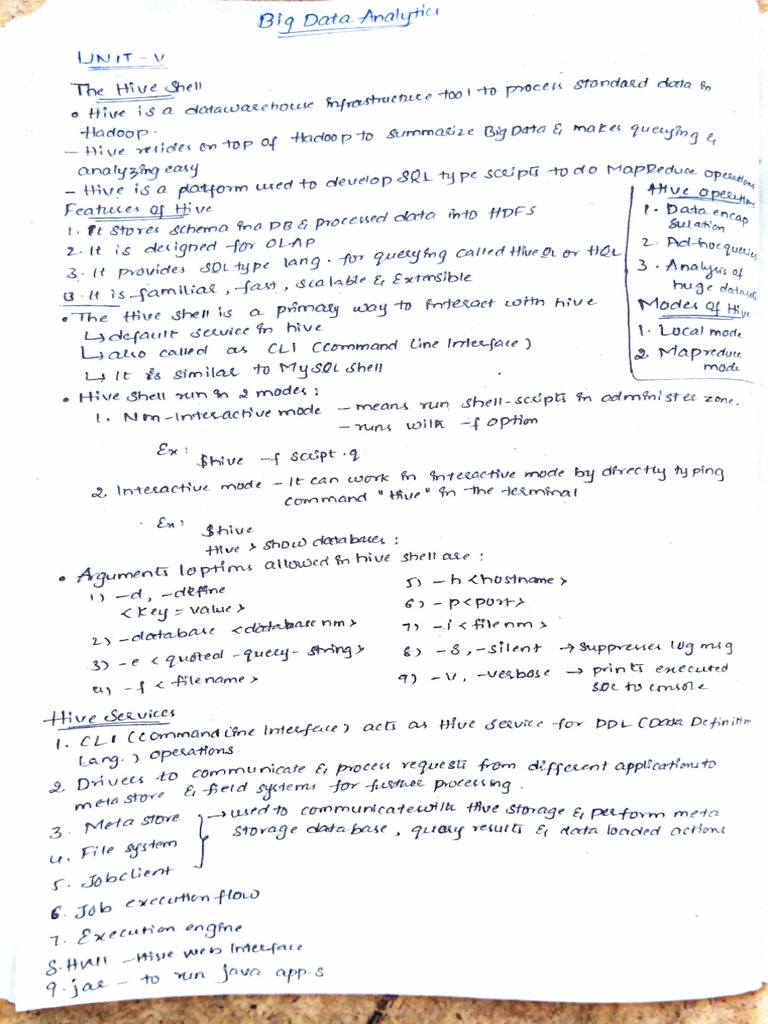 Big Data Analytics
UNIT - V
The Hive Shell
• Hive is a datawarehouse infrastructure tool to process standard data in
Hadoop.
- Hive resides on top of Hadoop to summarize Big Data & makes querying &
analyzing easy
- Hive is a platform used to develop SQL type scripts to do MapReduce operations
Features of Hive
1. It stores schema in a DB & processed data into HDFS
2. It is designed for OLAP
3. It provides SQL type lang. for querying called HiveQL or HQL
3. It is familiar, fast, scalable & Extnsible
Hive Operations
1. Data encap
sulation
2. Ad-hoc queries
3. Analysis of
huge datasets
Modes of Hive
1. Local mode
2. Mapreduce
mode
• The Hive shell is a primary way to interact with hive
↳ default service in hive
↳ also called as CLI (Command Line Interface)
↳ It is similar to MySQL shell
• Hive Shell run in 2 modes:
1. Non-Interactive mode - means run shell-scripts in administer zone.
- runs with -f option
Ex:
$hive -f script.q
2. Interactive mode - It can work in interactive mode by directly typing
command "Hive" in the terminal
Ex:
$hive
Hive > show databases;
• Arguments | options allowed in hive shell are:
1) -d, -define
<key = value>
2) -database <database nm>
3) -e <quoted-query-string>
4) -f <filename>
5) -h <hostname>
6) -p <port>
7) -i <filenm>
8) -S, -silent → suppresses log msg
9) -v, -verbose → prints executed
SQL to console
Hive Services
1. CLI (Command Line Interface) acts as Hive Service for DDL (Data Definition
Lang.) operations.
2. Drivers to communicate & process requests from different applications to
meta store & field systems for further processing.
3. Meta store
4. File system
5. Jobclient
→ used to communicate with Hive storage & perform meta
storage database, query results & data loaded actions
6. Job execution flow
7. Execution engine
8. HWI - Hive web Interface
9. jar - to run java app.s